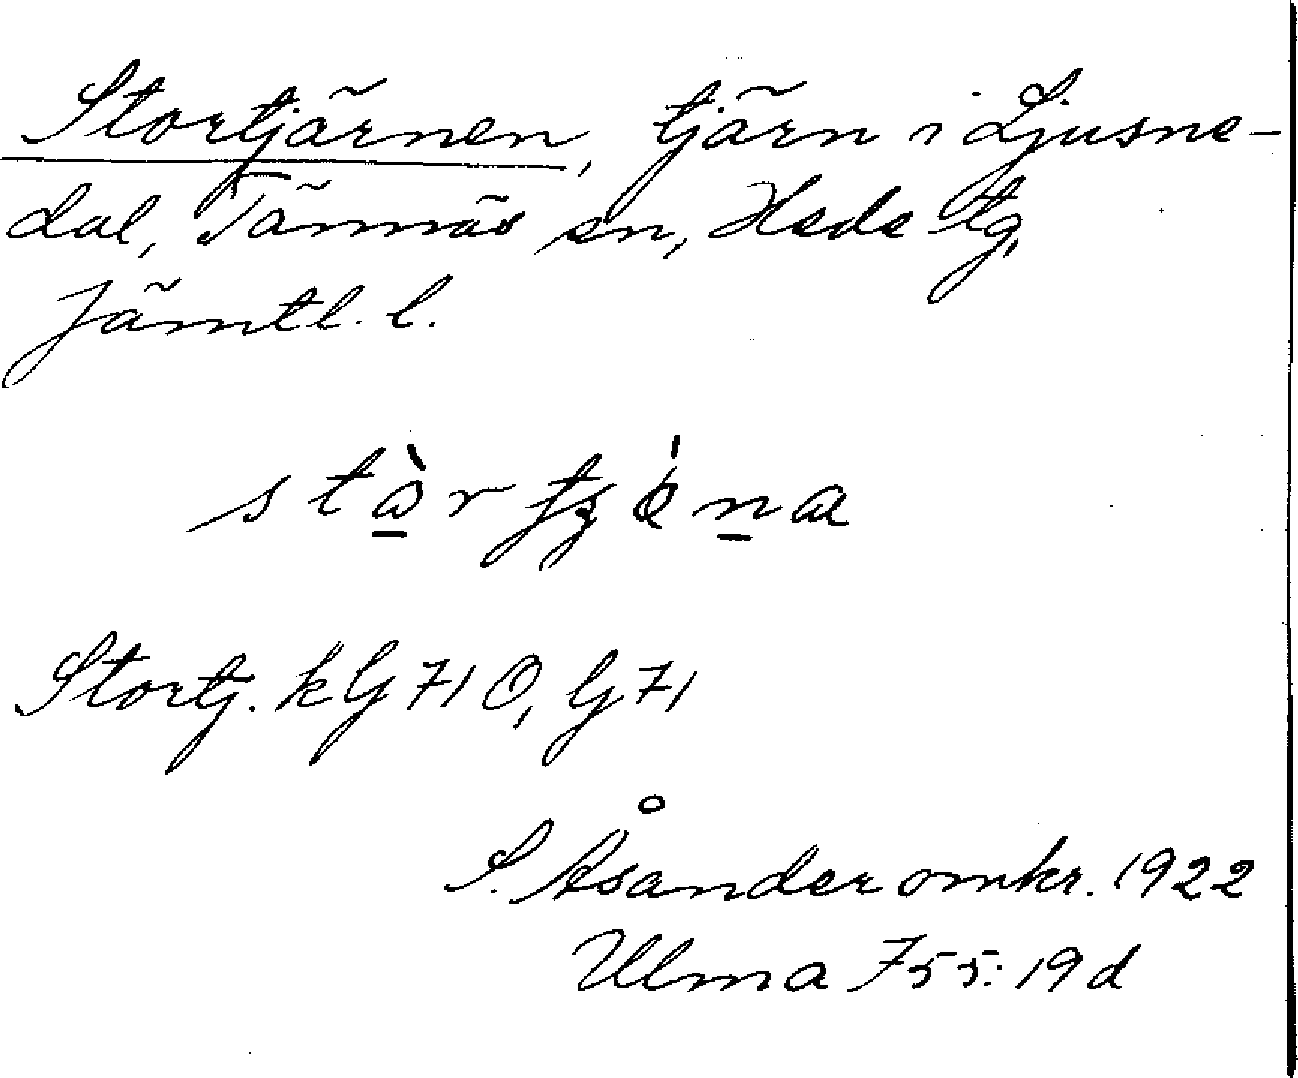 Stortjärnen, tjärn i Ljusne-
dal, Tännäs sn, Hede tg,
Jämtl. l.
Stortj. k G 71 O, G 71
S. Åsander omkr. 1922
Ulma 755:19d